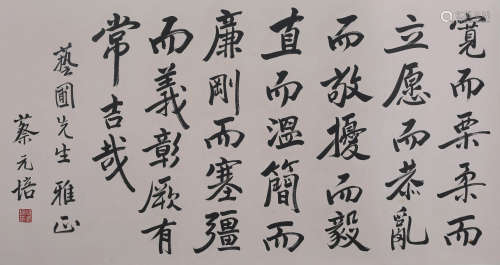 寬而栗柔而
立愿而恭亂
而敬擾而毅
直而溫簡而
廉剛而塞彊
而義彰厥有
常吉哉
藝圃先生雅正
蔡元培